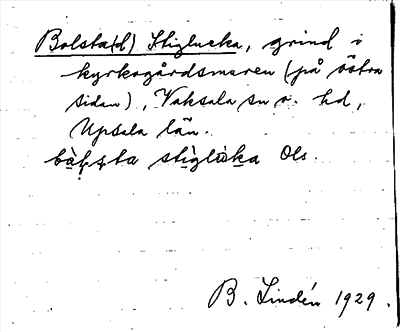 Bolsta(d) Stiglucka, grind i
kyrkogårdsmuren (på östra
sidan), Vaksala sn o. hd,
Upsala län.
stiglùka Ols.
B. Lindén 1929.